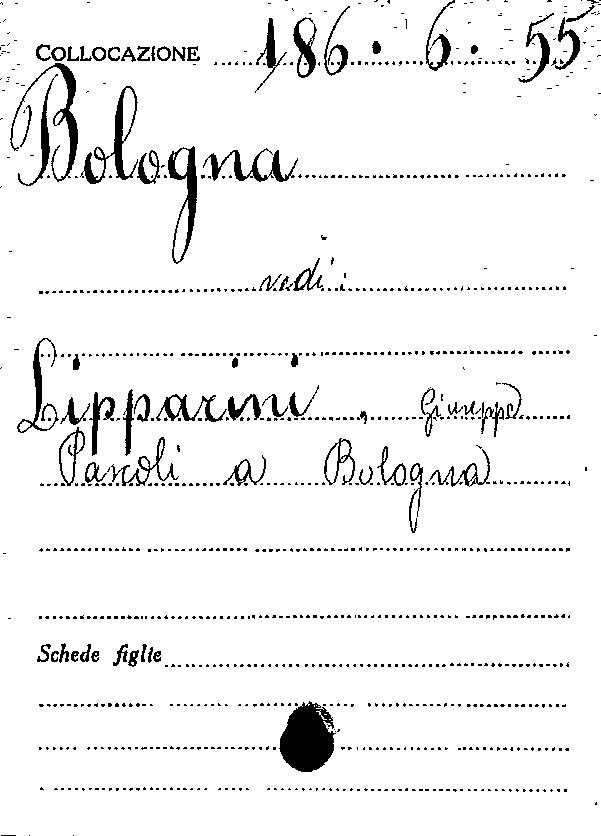 COLLOCAZIONE 186.6.55
Bologna
vedi:
Lipparini, Giuseppe
Pascoli a Bologna
Schede figlie